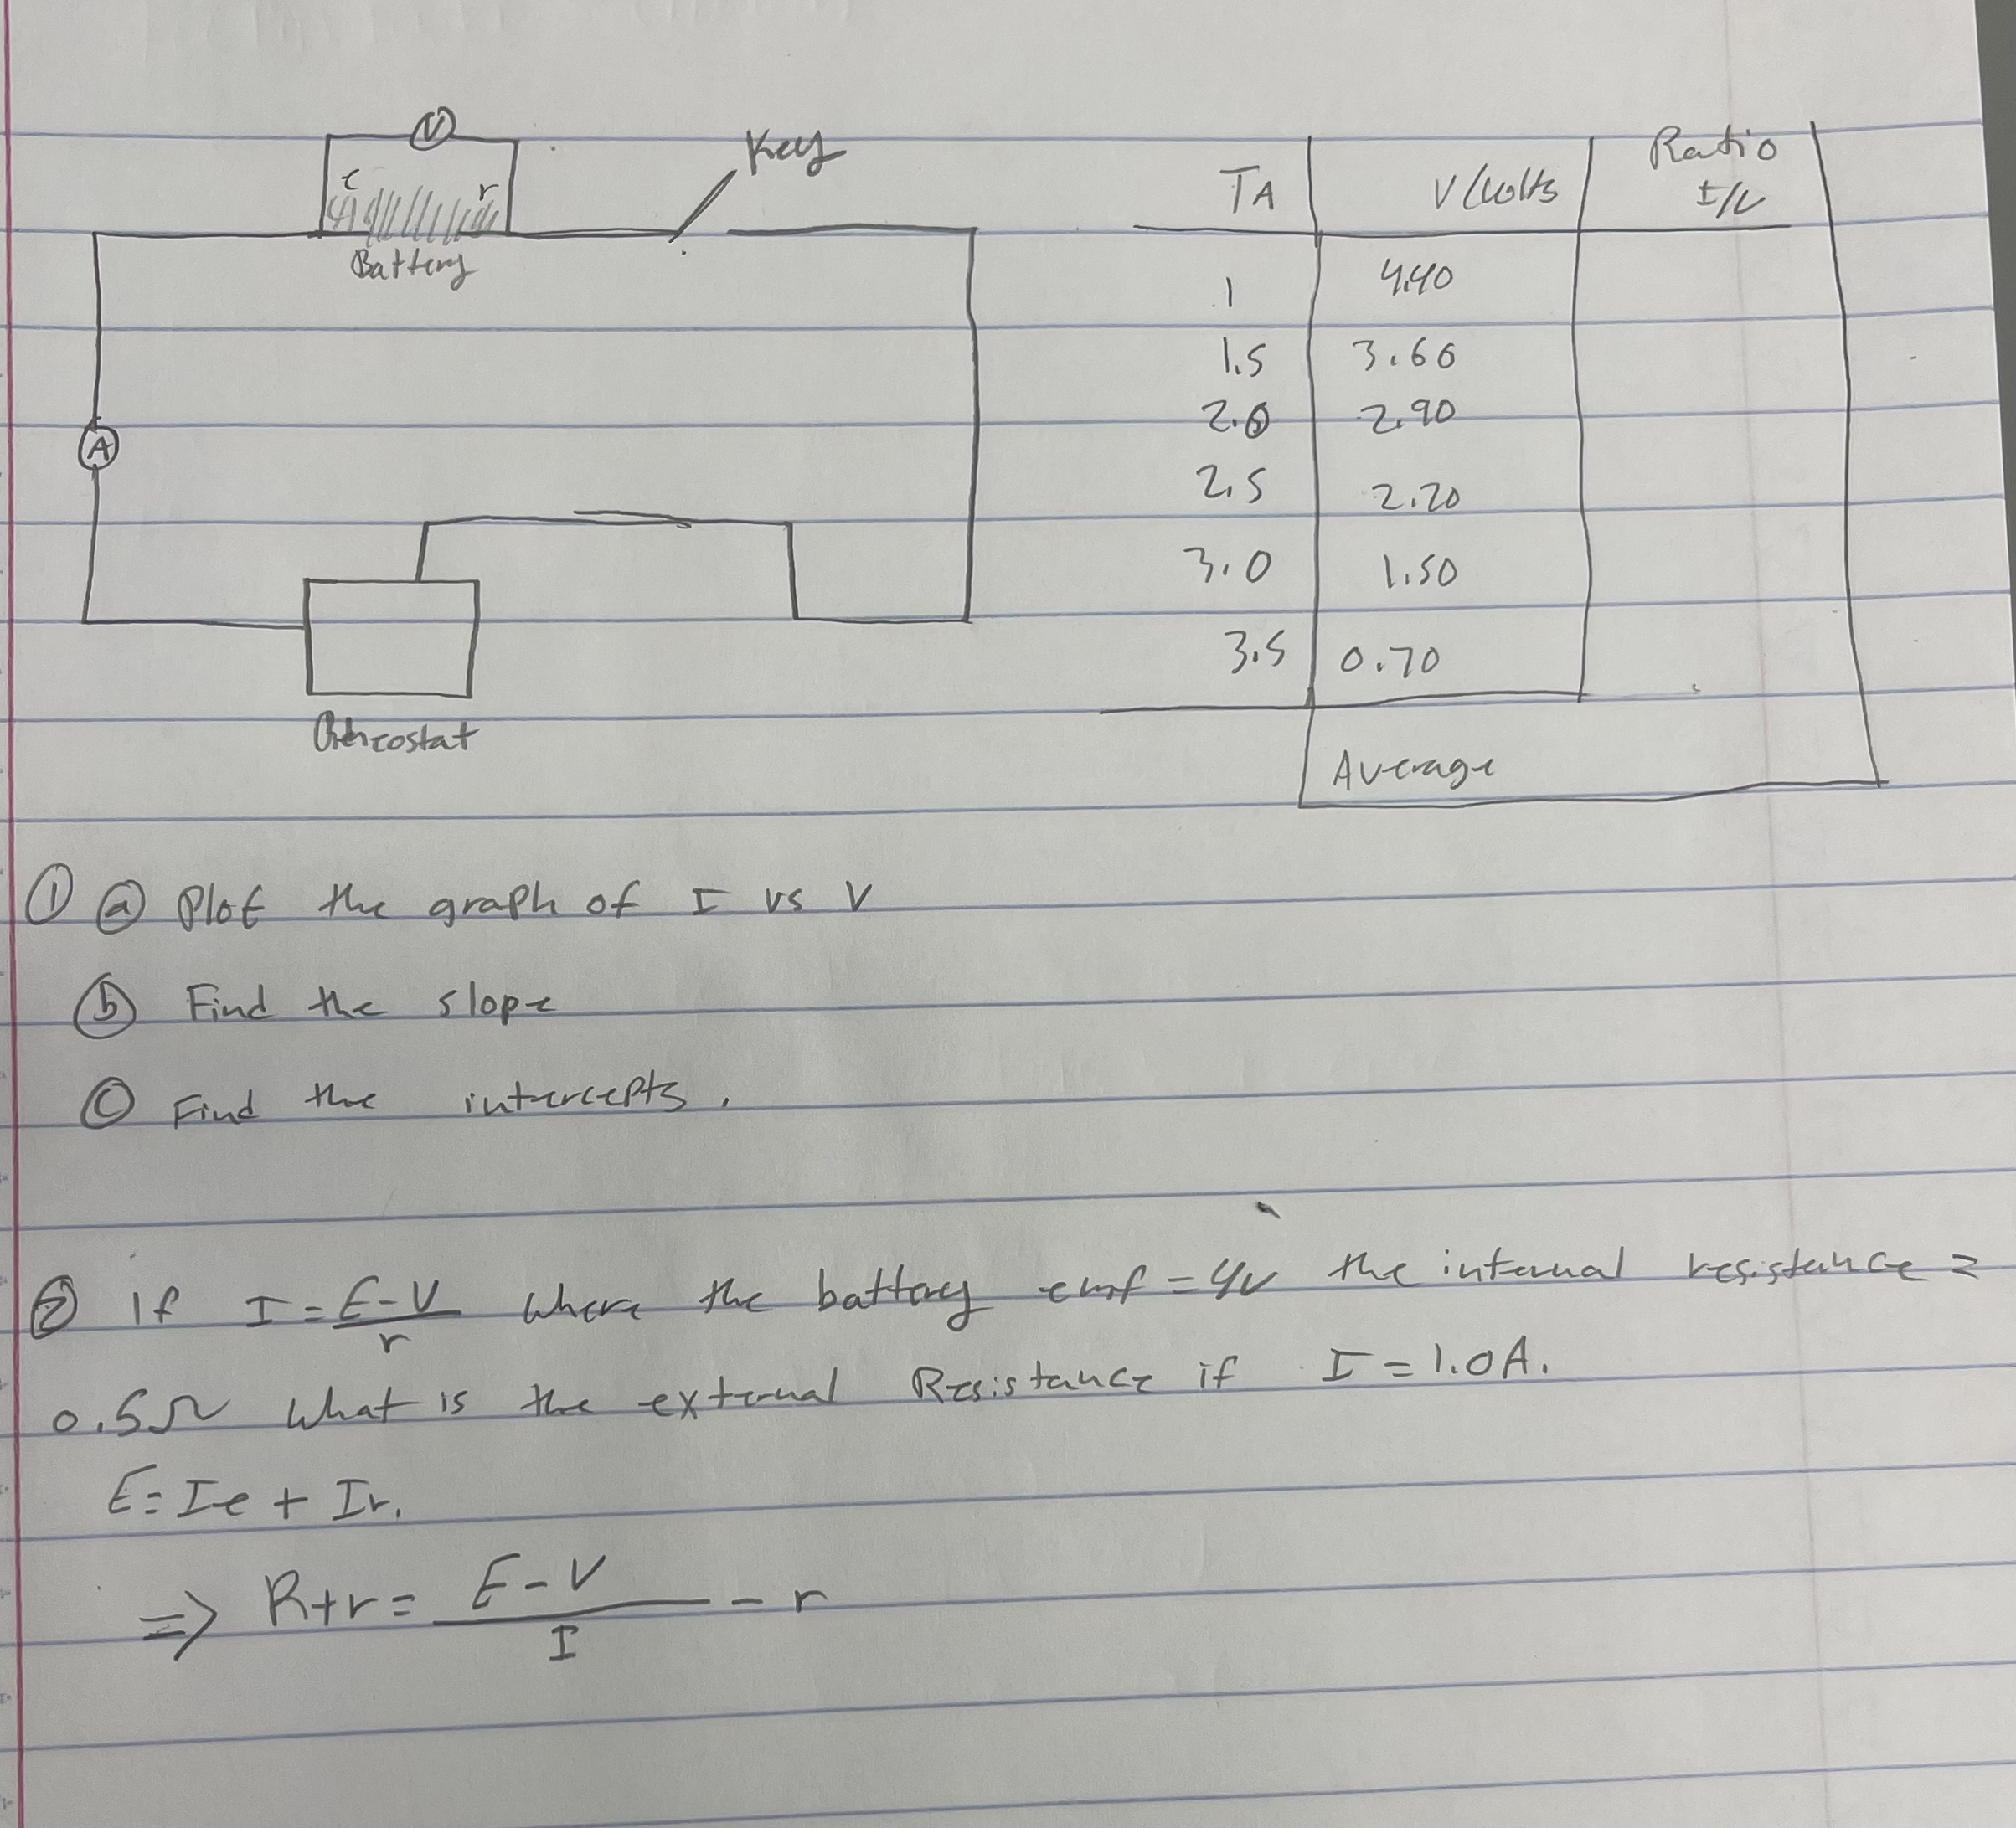 V
Key
ε r
Battery
A
Rheostat
IA V/volts Ratio I/V
1 4.40
1.5 3.60
2.0 2.90
2.5 2.20
3.0 1.50
3.5 0.70
Average
① ⓐ Plot the graph of I vs V
ⓑ Find the slope
ⓒ Find the intercepts.
② If I = E-V/r where the battery emf = 4V the internal resistance =
0.5Ω What is the external Resistance if I = 1.0A.
E = Ie + Ir.
=> R+r = E-V/I - r